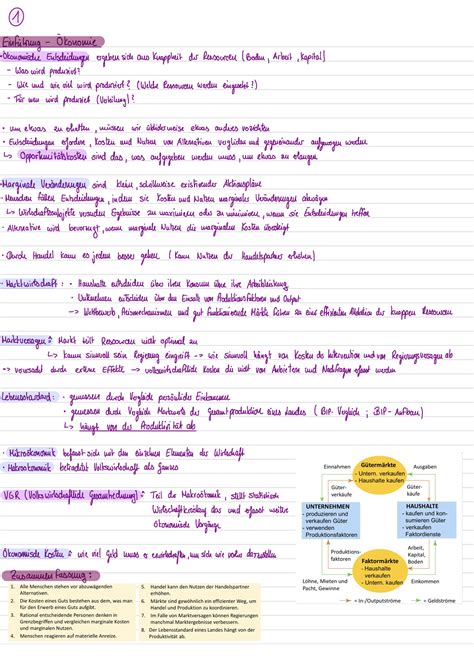 1
Einführung - Ökonomie
• Ökonomische Entscheidungen ergeben sich aus Knappheit der Ressourcen (Boden, Arbeit, Kapital)
- Was wird produziert?
- Wie und wie viel wird produziert? (Welche Ressourcen werden eingesetzt?)
- Für wen wird produziert (Verteilung)?
• um etwas zu erhalten, müssen wir üblicherweise etwas anderes verzichten
• Entscheidungen erfordern, Kosten und Nutzen von Alternativen verglichen und gegeneinander aufgewogen werden
↳ Opportunitätskosten sind das, was aufgegeben werden muss, um etwas zu erlangen
• Marginale Veränderungen sind klein, schrittweise existierender Aktionspläne
• Menschen fällen Entscheidungen, indem sie Kosten und Nutzen marginaler Veränderungen abwägen
↳ Wirtschaftssubjekte versuchen Ergebnisse zu maximieren oder zu minimieren, wenn sie Entscheidungen treffen
• Alternative wird bevorzugt, wenn marginale Nutzen die marginalen Kosten übersteigt
• Durch Handel kann es jedem besser gehen (Kann Nutzen der Handelspartner erhöhen)
• Marktwirtschaft: • Haushalte entscheiden über ihren Konsum über ihre Arbeitsleistung
• Unternehmen entscheiden über den Einsatz von Produktionsfaktoren und Output
→ Wettbewerb, Preismechanismen und gut funktionierende Märkte führen zu einer effizienten Allokation der knappen Ressourcen
Marktversagen: Markt teilt Ressourcen nicht optimal zu
↳ kann sinnvoll sein Regierung eingreift → wie sinnvoll hängt von Kosten der Intervention und von Regierungsversagen ab
→ verursacht durch externe Effekte → volkswirtschaftliche Kosten die nicht von Anbietern und Nachfragern erfasst werden
Lebensstandard: • gemessen durch Vergleich persönliches Einkommen
• gemessen durch Vergleich Marktwerts der Gesamtproduktion eines Landes (BIP-Vergleich ; BIP-Aufbau)
↳ hängt von der Produktivität ab
• Mikroökonomik befasst sich mit den einzelnen Elementen der Wirtschaft
• Makroökonomik betrachtet Volkswirtschaft als Ganzes
VGR (Volkswirtschaftliche Gesamtrechnung): Teil der Makroökonomik, stellt statistischen
Wirtschaftskreislauf dar und erfasst weitere
ökonomische Vorgänge
Ökonomische Kosten: wie viel Geld muss erwirtschaften, um sich wie vorher
Zusammenfassung:
1. Alle Menschen stehen vor abzuwägenden Alternativen.
2. Die Kosten eines Guts bestehen aus dem, was man für den Erwerb eines Guts aufgibt.
3. Rational entscheidende Personen denken in Grenzbegriffen und vergleichen marginale Kosten und marginalen Nutzen.
4. Menschen reagieren auf materielle Anreize.
5. Handel kann den Nutzen der Handelspartner erhöhen.
6. Märkte sind gewöhnlich ein effizienter Weg, um Handel und Produktion zu koordinieren.
7. Im Falle von Marktversagen können Regierungen manchmal Marktergebnisse verbessern.
8. Der Lebensstandard eines Landes hängt von der Produktivität ab.
Einnahmen
Gütermärkte
- Untern. verkaufen
- Haushalte kaufen
Ausgaben
Güter-
verkäufe
Güter-
käufe
UNTERNEHMEN
- produzieren und
verkaufen Güter
- verwenden
Produktionsfaktoren
HAUSHALTE
- kaufen und kon-
sumieren Güter
- verkaufen
Faktordienste
Produktions-
faktoren
Arbeit,
Kapital,
Boden
Faktormärkte
- Haushalte
verkaufen
- Untern. kaufen
Löhne, Mieten und
Pacht, Gewinne
Einkommen
= In-/Outputströme
= Geldströme